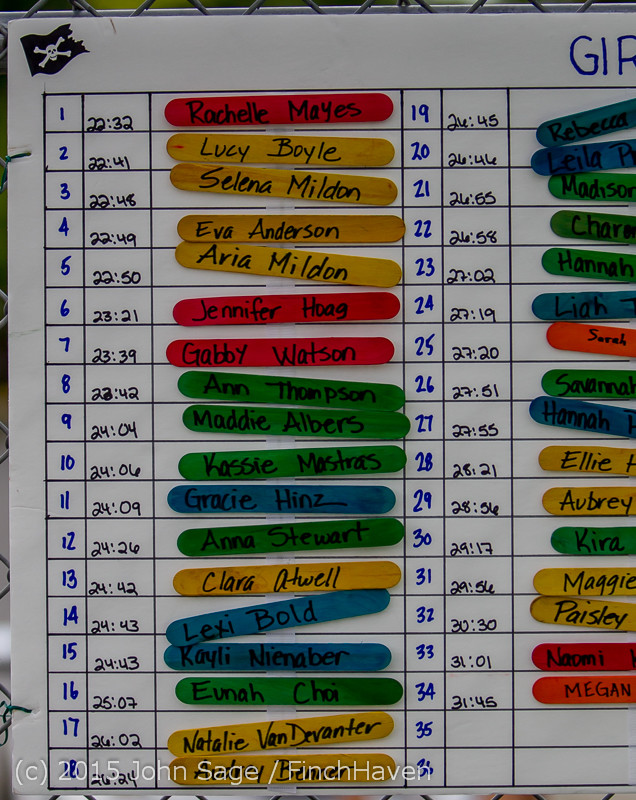 GIR
1 22:32 Rachelle Mayes 19 26:45 Rebecca
2 22:41 Lucy Boyle 20 26:46 Leila
3 22:48 Selena Mildon 21 26:55 Madison
4 22:49 Eva Anderson 22 26:58
5 22:50 Aria Mildon 23 27:02 Hannah
6 23:21 Jennifer Hoag 24 27:19 Liah
7 23:39 Gabby Watson 25 27:20 Sarah
8 23:42 Ann Thompson 26 27:51 Savannah
9 24:04 Maddie Albers 27 27:55 Hannah
10 24:06 Kassie Mastras 28 28:21 Ellie
11 24:09 Gracie Hinz 29 28:56 Aubrey
12 24:26 Anna Stewart 30 29:17 Kira
13 24:42 Clara Atwell 31 29:56 Maggie
14 24:43 Lexi Bold 32 30:30 Paisley
15 24:43 Kayli Nienaber 33 31:01 Naomi
16 25:07 Eunah Choi 34 31:45 MEGAN
17 26:02 Natalie VanDevanter 35
18 26:24 36
(c) 2015 John Sage / FinchHaven